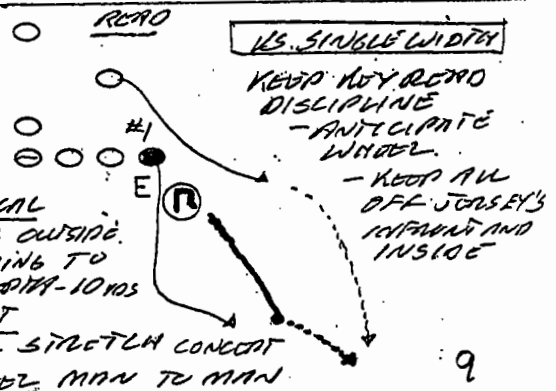 READ
VS. SINGLE WIDTH
KEEP KEY READ
DISCIPLINE
- ANTICIPATE
WHEEL.
- KEEP ALL
OFF JERSEY'S
INFRONT AND
INSIDE
#1
E
OUTSIDE.
TO
-10 YDS
STRETCH CONCEPT
MAN TO MAN
9